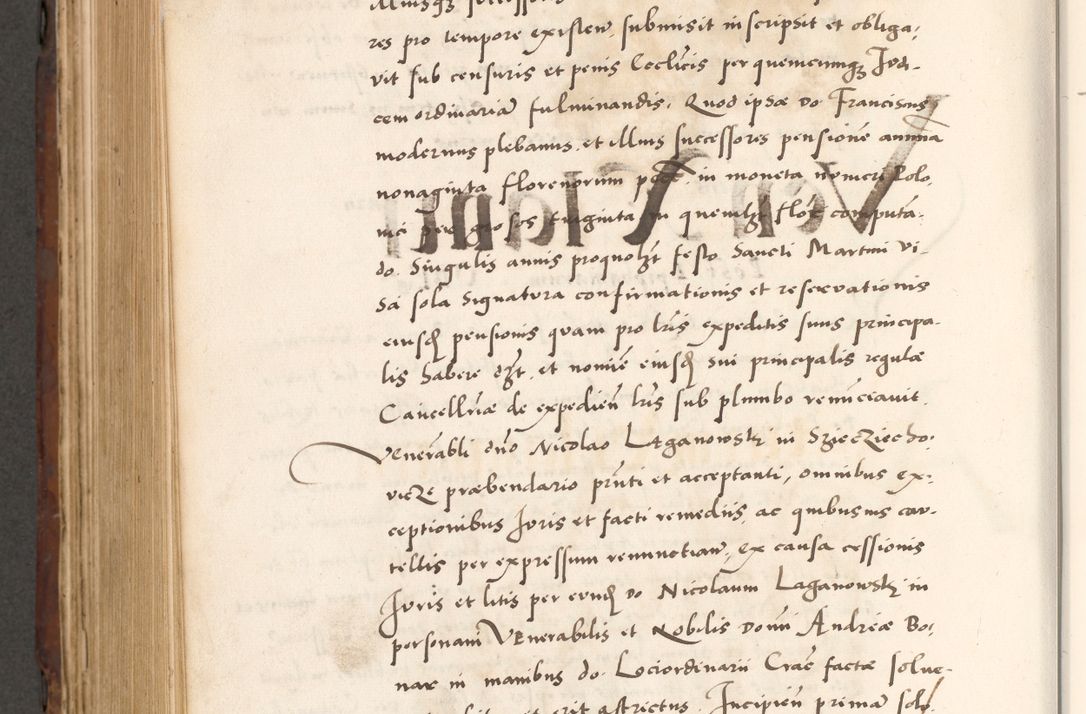 res pro tempore existeñ submisit inscripsit et obliga,
vit sub censuris et penis Ecclicis per quemcumq Judi-
cem ordinariã fulminandis. Quod ipsæ do Franciscus
modernus plebanus et illius successores pensionẽ annua
nonaginta florenorum in moneta numeri Polo,
nici per grosos triginta in quemlibet flor computa-
do. Singulis annis pro quolibet festo Sancti Martini vi-
sa sola signatura confirmationis et reservationis
eiusd pensionis quam pro lris expeditis suus principa-
lis habere et nomiẽ eiusd sui principalis regulæ
Cancellriæ de expedieñ lris sub plumbo renunciavit.
Venerabli dño Nicolao Łaganowski in Szieczziecho,
vicze præbendario pñti et acceptanti, omnibus ex-
ceptionibus Juris et facti remediis, ac quibusvis cau-
tellis per expressum renunotiañ, ex causa cessionis
Juris et litis per eund do Nicolaum Laganowski in
personam Venerabilis et Nobilis Domi Andreæ Bo,
nar in manibus do. Lociordinarii Crac factæ solve-
erit astrictus. Incipieñ prima solu